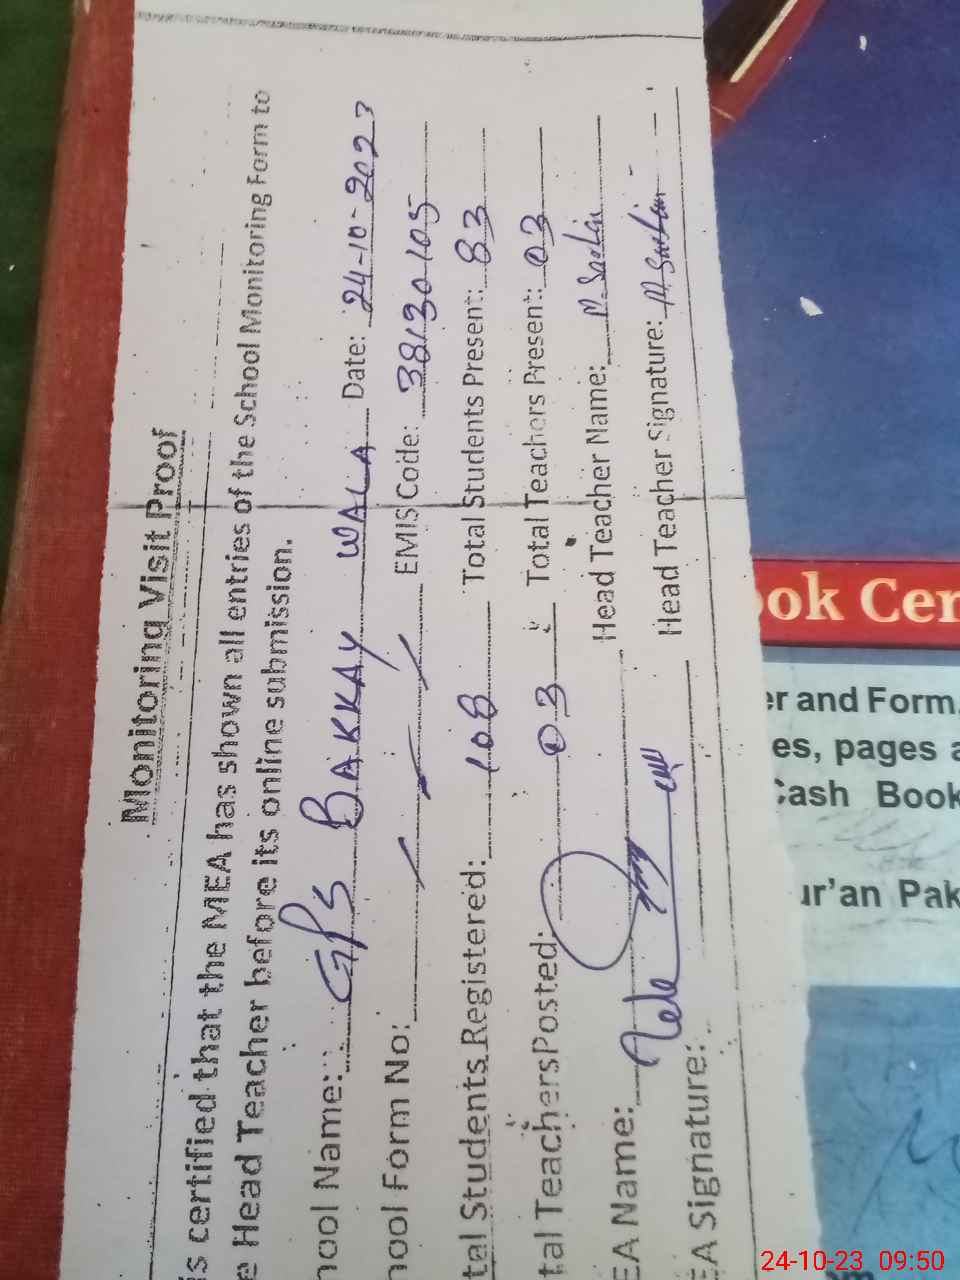 Monitoring Visit Proof
is certified that the MEA has shown all entries of the School Monitoring Form to
e Head Teacher before its online submission.
hool Name: GPS BAKKAY WALA Date: 24-10-2023
hool Form No: EMIS Code: 38130105
tal Students Registered: 108 Total Students Present: 83
tal Teachers Posted: 03 Total Teachers Present: 03
EA Name: Head Teacher Name: M. Saalin
EA Signature: Head Teacher Signature: M. Saalin
ok Cer
er and Form,
es, pages a
Cash Book
ur'an Pak
um
24-10-23 09:50